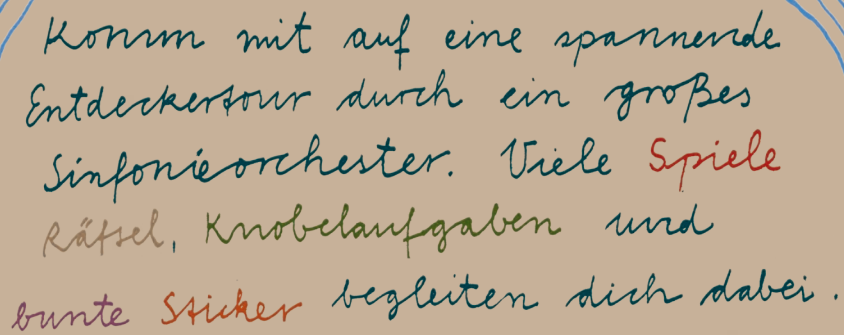 Komm mit auf eine spannende
Entdeckertour durch ein großes
Sinfonieorchester. Viele Spiele
Rätsel, Knobelaufgaben und
bunte Sticker begleiten dich dabei.